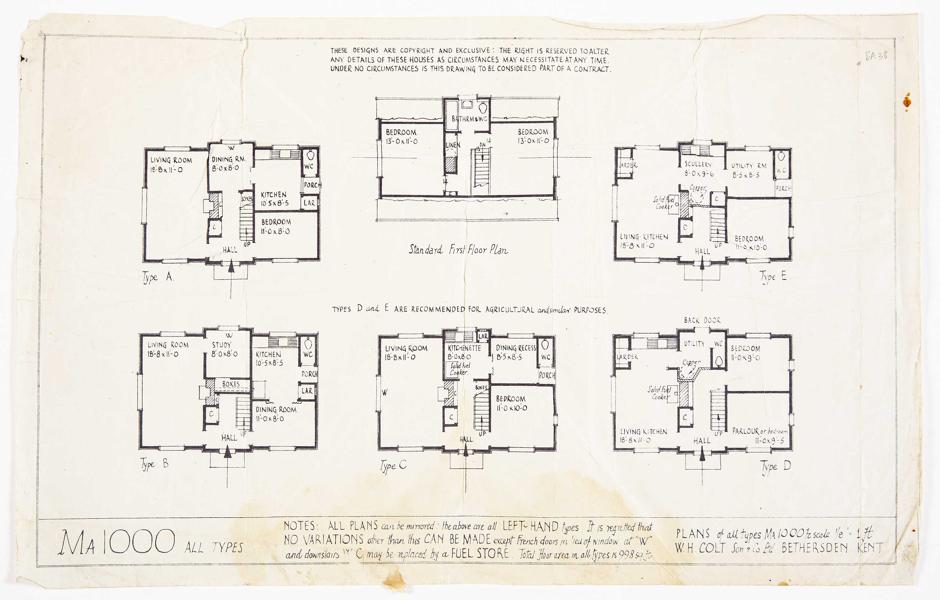 THESE DESIGNS ARE COPYRIGHT AND EXCLUSIVE : THE RIGHT IS RESERVED TO ALTER
ANY DETAILS OF THESE HOUSES AS CIRCUMSTANCES MAY NECESSITATE AT ANY TIME.
UNDER NO CIRCUMSTANCES IS THIS DRAWING TO BE CONSIDERED PART OF A CONTRACT.
LIVING ROOM
18-8 x 11-0
W
DINING RM.
8-0 x 8-0
WC
PORCH
LAR
KITCHEN
10-5 x 8-5
BEDROOM
11-0 x 8-0
C
UP
HALL
Type A.
BATHRM & WC
BEDROOM
13-0 x 11-0
LINEN
DN
BEDROOM
13-0 x 11-0
Standard First Floor Plan.
LARDER
SCULLERY
8-0 x 9-6
UTILITY RM.
8-5 x 8-5
WC
PORCH
Copper
Solid fuel
Cooker
C
C
LIVING-KITCHEN
18-8 x 11-0
BEDROOM
HALL
UP
Type E
TYPES D and E ARE RECOMMENDED FOR AGRICULTURAL and similar PURPOSES.
LIVING ROOM
18-8 x 11-0
W
STUDY
8-0 x 8-0
KITCHEN
10-5 x 8-5
WC
PORCH
LAR
BOXES
C
DINING ROOM
11-0 x 8-0
HALL
UP
Type B
LIVING ROOM
18-8 x 11-0
W
KITCHENETTE
8-0 x 8-0
Solid fuel
Cooker
LAR
DINING RECESS
8-5 x 8-5
WC
PORCH
BOXES
C
BEDROOM
11-0 x 10-0
HALL
UP
Type C
BACK DOOR
LARDER
UTILITY
WC
BEDROOM
11-0 x 9-0
Copper
Solid fuel
Cooker
C
LIVING KITCHEN
18-8 x 11-0
PARLOUR or bedroom
11-0 x 9-5
HALL
UP
Type D
MA 1000 ALL TYPES
NOTES: ALL PLANS can be mirrored : the above are all LEFT-HAND types It is regretted that
NO VARIATIONS other than this CAN BE MADE except French doors in lieu of window at "W"
and downstairs C may be replaced by a FUEL STORE. Total floor area in all types is 998 sq. ft.
PLANS of all types MA 1000 scale 1/8" = 1 ft
W H COLT Son & Co Ld BETHERSDEN KENT